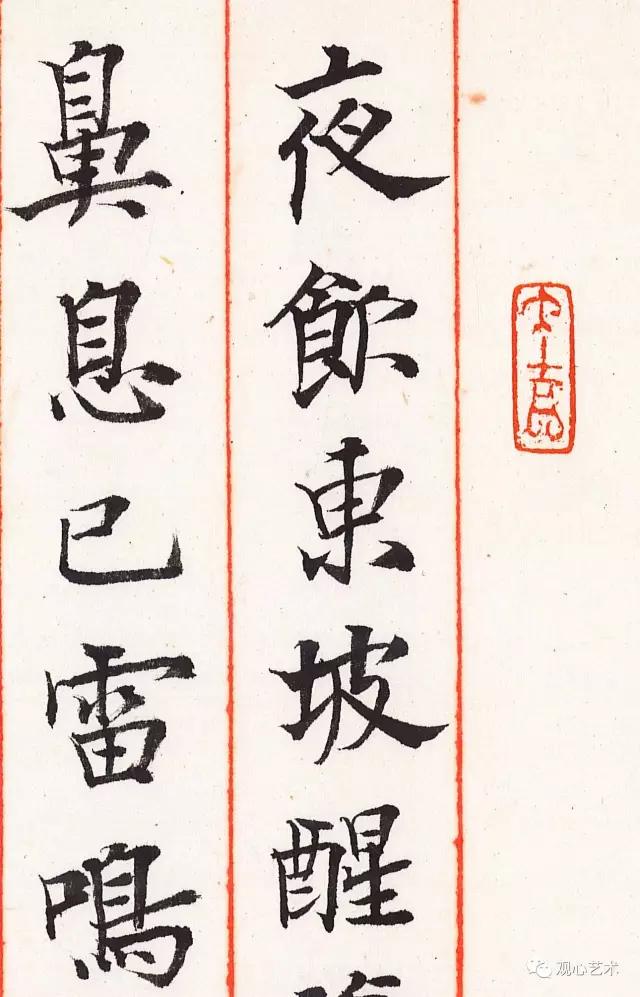 夜飲東坡醒
鼻息已雷鳴
观心艺术